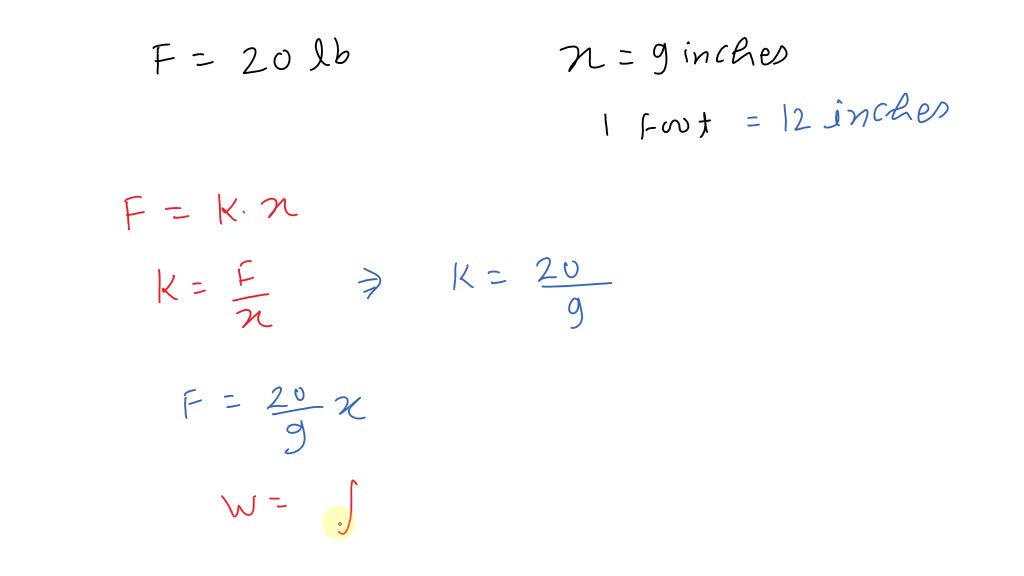 F = 20 lb
x = 9 inches
1 Foot = 12 inches
F = K. x
K = F/x ⇒ K = 20/9
F = 20/9 x
W = ∫